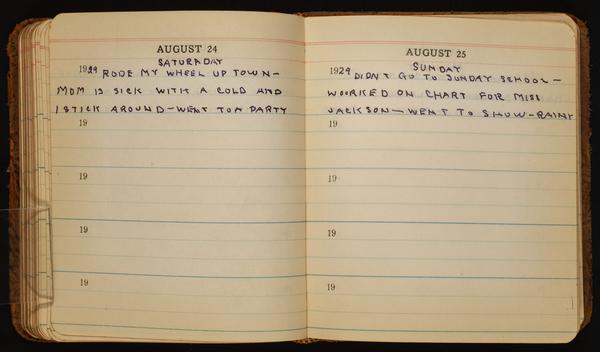 AUGUST 24
SATURDAY
1929 RODE MY WHEEL UP TOWN-
MOM IS SICK WITH A COLD AND
I STICK AROUND-WENT TO A PARTY
19
19
19
19
AUGUST 25
SUNDAY
1929 DIDNT GO TO SUNDAY SCHOOL-
WORKED ON CHART FOR MISS
JACKSON-WENT TO SHOW-RAINY
19
19
19
19